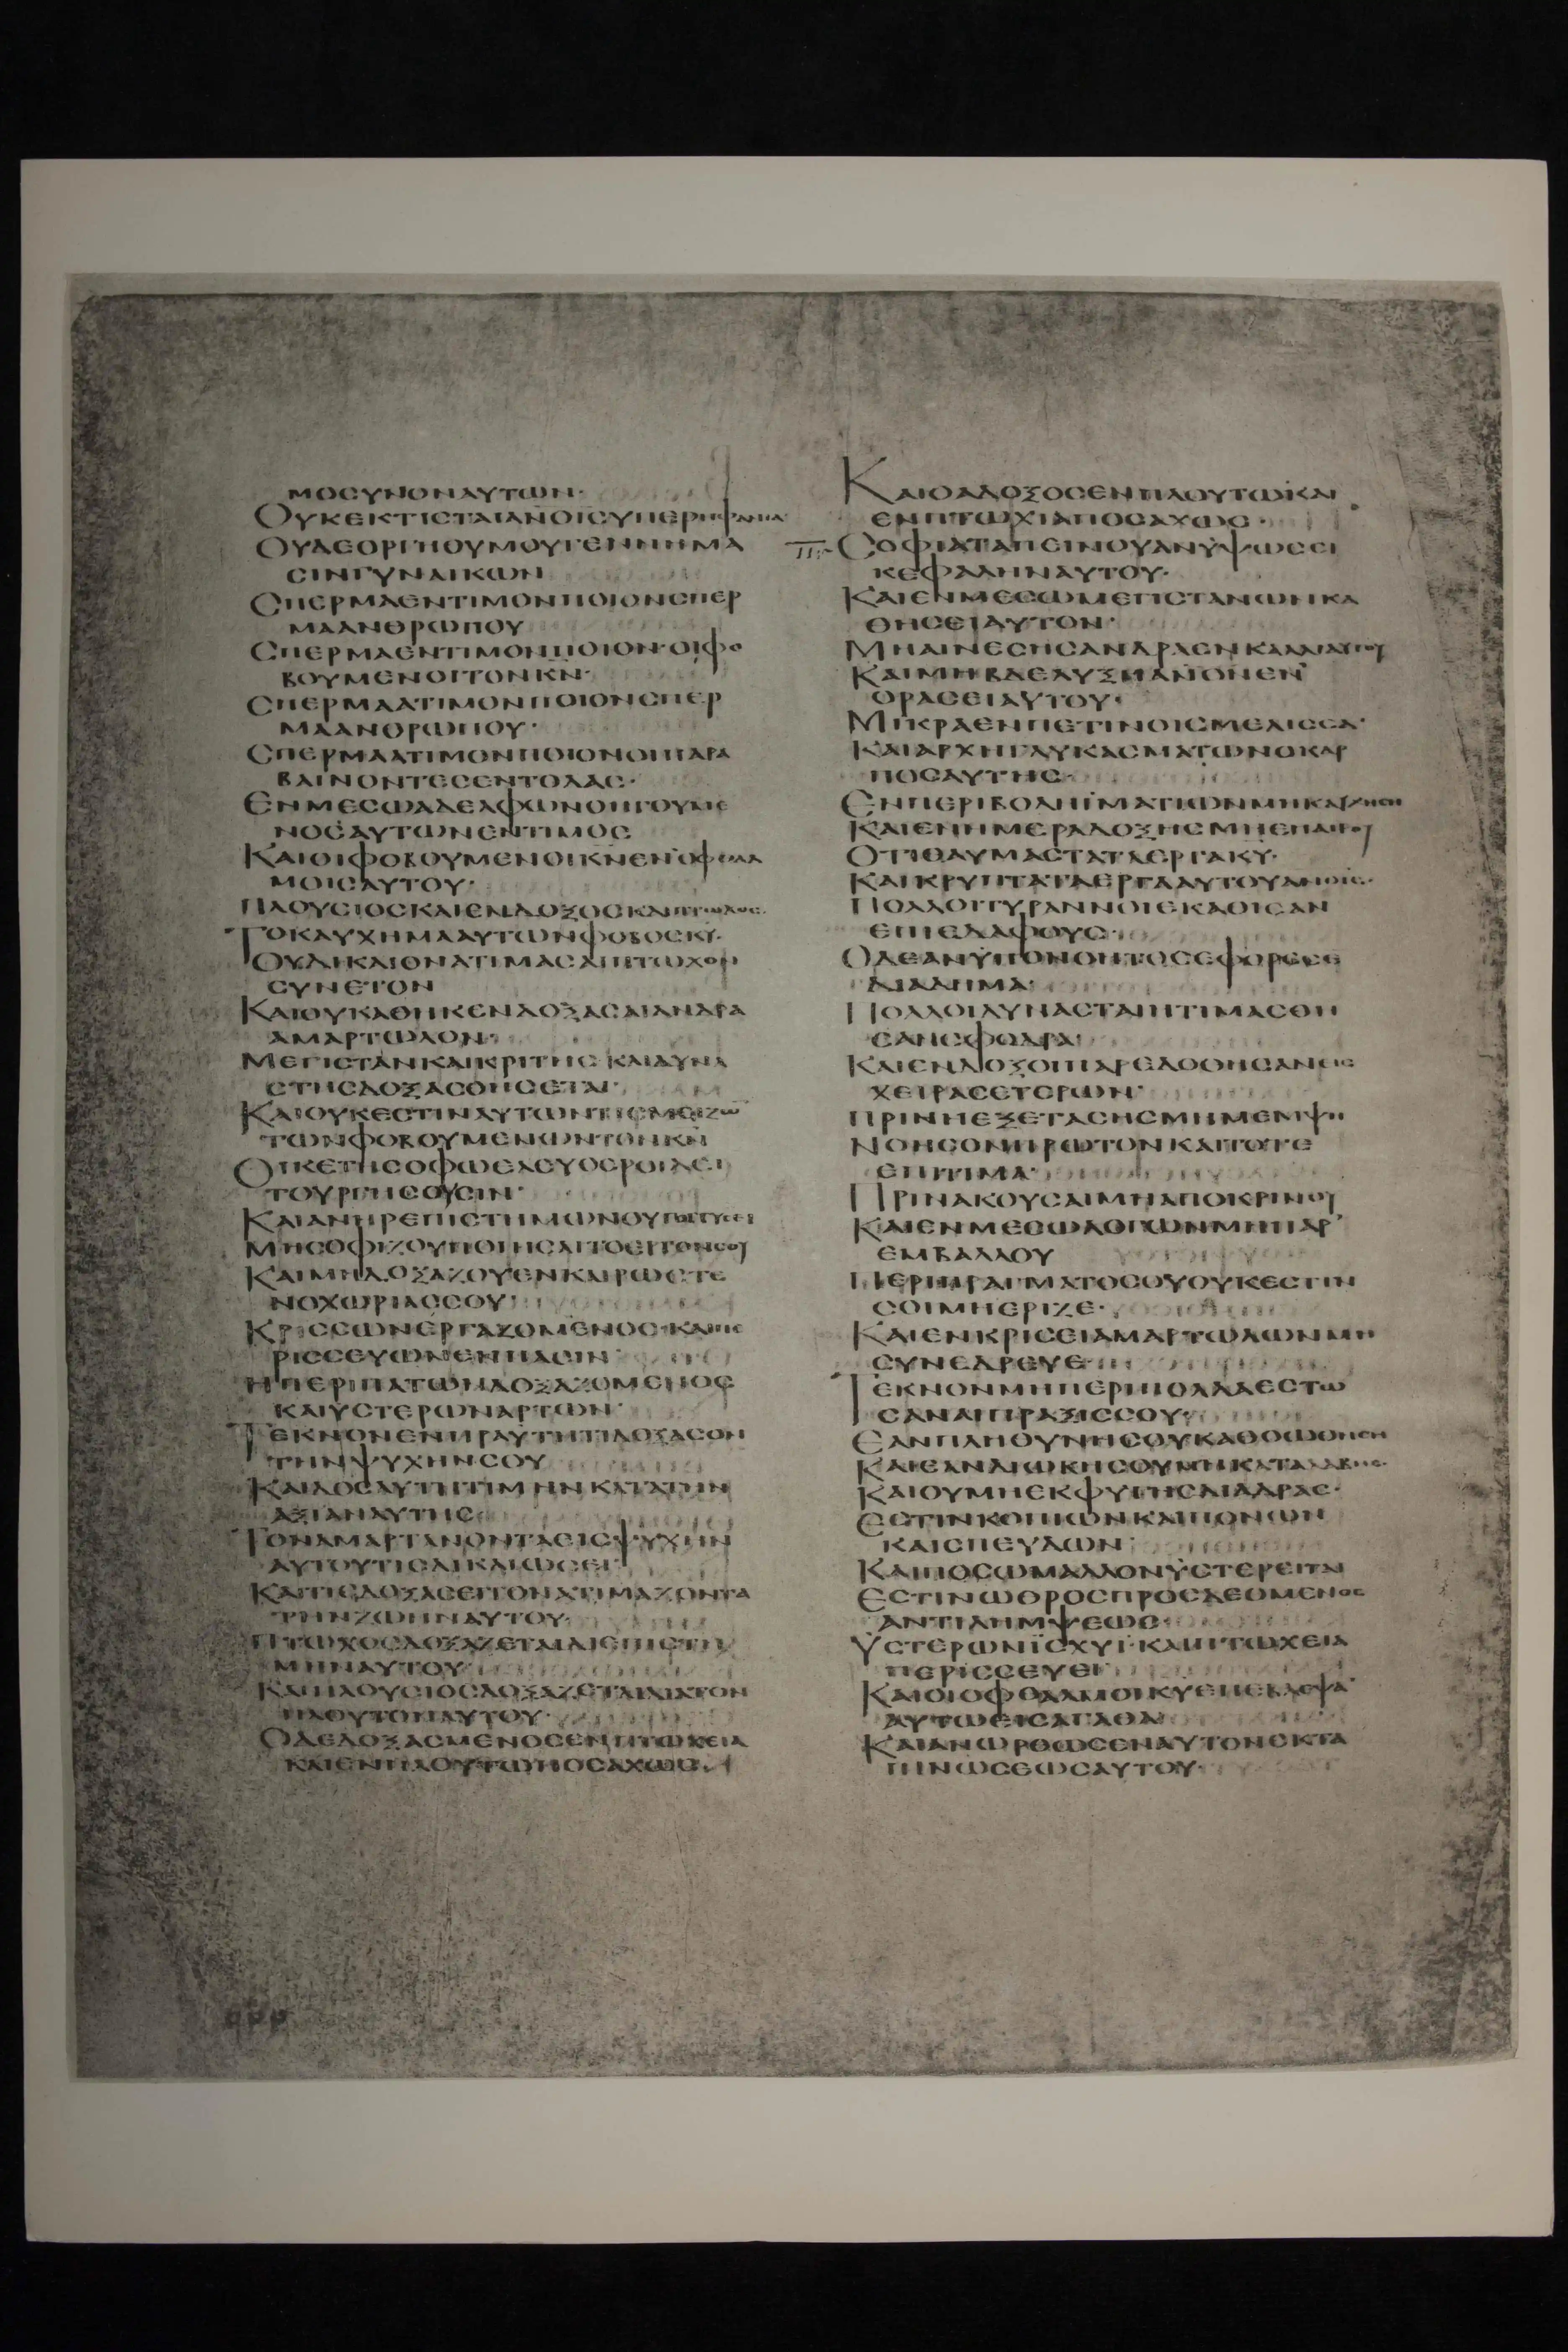 ΜΟСΥΝΟΝΑΥΤΩΝ·
ΟΥΚΕΚΤΙСΤΑΙΑΝΟΙСΥΠΕΡΗΦΑΝΙΑ
ΟΥΔΕΟΡΓΗΟΥΜΟΥΓΕΝΝΗΜΑ
СΙΝΓΥΝΑΙΚΩΝ
СΠΕΡΜΑΕΝΤΙΜΟΝΠΟΙΟΝСΠΕΡ
ΜΑΑΝΘΡΩΠΟΥ
СΠΕΡΜΑΕΝΤΙΜΟΝΠΟΙΟΝ·ΟΙΦΟ
ΒΟΥΜΕΝΟΙΤΟΝΚΝ·
СΠΕΡΜΑΑΤΙΜΟΝΠΟΙΟΝСΠΕΡ
ΜΑΑΝΘΡΩΠΟΥ·
СΠΕΡΜΑΑΤΙΜΟΝΠΟΙΟΝΟΙΠΑΡΑ
ΒΑΙΝΟΝΤΕСΕΝΤΟΛΑС·
ΕΝΜΕСΩΑΔΕΛΦΩΝΟΗΓΟΥΜΕ
ΝΟСΑΥΤΩΝΕΝΤΙΜΟС
ΚΑΙΟΙΦΟΒΟΥΜΕΝΟΙΚΝΕΝΟΦΘΑΛ
ΜΟΙСΑΥΤΟΥ·
ΠΛΟΥСΙΟСΚΑΙΕΝΔΟΞΟСΚΑΙΠΤΩΧΟС·
ΤΟΚΑΥΧΗΜΑΑΥΤΩΝΦΟΒΟСΚΥ·
ΟΥΔΙΚΑΙΟΝΑΤΙΜΑСΑΙΠΤΩΧΟΝ
СΥΝΕΤΟΝ
ΚΑΙΟΥΚΑΘΗΚΕΝΔΟΞΑСΑΙΑΝΔΡΑ
ΑΜΑΡΤΩΛΟΝ·
ΜΕΓΙСΤΑΝΚΑΙΚΡΙΤΗСΚΑΙΔΥΝΑ
СΤΗСΔΟΞΑСΘΗСΕΤΑΙ·
ΚΑΙΟΥΚΕСΤΙΝΑΥΤΩΝΤΙСΜΕΙΖΩ
ΤΩΝΦΟΒΟΥΜΕΝΩΝΤΟΝΚΝ
ΟΙΚΕΤΗСΟΦΩΕΛΕΥΘΕΡΟΙΛΕΙ
ΤΟΥΡΓΗСΟΥСΙΝ·
ΚΑΙΑΝΗΡΕΠΙСΤΗΜΩΝΟΥΓΟΓΓΥСΕΙ
ΜΗСΟΦΙΖΟΥΠΟΙΗСΑΙΤΟΕΡΓΟΝСΟΥ
ΚΑΙΜΗΔΟΞΑΖΟΥΕΝΚΑΙΡΩСΤΕ
ΝΟΧΩΡΙΑССΟΥ·
ΚΡΙССΩΝΕΡΓΑΖΟΜΕΝΟС·ΚΑΙΠΕ
ΡΙССΕΥΩΝΕΝΠΑСΙΝ
ΗΠΕΡΙΠΑΤΩΝΔΟΞΑΖΟΜΕΝΟС
ΚΑΙΥСΤΕΡΩΝΑΡΤΩΝ·
ΤΕΚΝΟΝΕΝΠΡΑΥΤΗΤΙΔΟΞΑСΟΝ
ΤΗΝΨΥΧΗΝСΟΥ
ΚΑΙΔΟСΑΥΤΗΤΙΜΗΝΚΑΤΑΤΗΝ
ΑΞΙΑΝΑΥΤΗС
ΤΟΝΑΜΑΡΤΑΝΟΝΤΑΕΙСΨΥΧΗΝ
ΑΥΤΟΥΤΙСΔΙΚΑΙΩСΕΙ
ΚΑΙΤΙСΔΟΞΑСΕΙΤΟΝΑΤΙΜΑΖΟΝΤΑ
ΤΗΝΖΩΗΝΑΥΤΟΥ·
ΠΤΩΧΟСΔΟΞΑΖΕΤΑΙΔΙΕΠΙСΤΗ
ΜΗΝΑΥΤΟΥ
ΚΑΙΠΛΟΥСΙΟСΔΟΞΑΖΕΤΑΙΔΙΑΤΟΝ
ΠΛΟΥΤΟΝΑΥΤΟΥ·
ΟΔΕΔΟΞΑСΜΕΝΟСΕΝΠΤΩΧΕΙΑ
ΚΑΙΕΝΠΛΟΥΤΩΠΟСΑΧΩС·
ΚΑΙΟΑΔΟΞΟСΕΝΠΛΟΥΤΩΚΑΙ
ΕΝΠΤΩΧΙΑΠΟСΑΧΩС·
СΟΦΙΑΤΑΠΕΙΝΟΥΑΝΥΨΩСΕΙ
ΚΕΦΑΛΗΝΑΥΤΟΥ·
ΚΑΙΕΝΜΕСΩΜΕΓΙСΤΑΝΩΝΚΑ
ΘΗСΕΙΑΥΤΟΝ·
ΜΗΑΙΝΕСΗСΑΝΔΡΑΕΝΚΑΛΛΙΑΥΤΟΥ
ΚΑΙΜΗΒΔΕΛΥΞΗΑΝΟΝΕΝ
ΟΡΑСΕΙΑΥΤΟΥ·
ΜΙΚΡΑΕΝΠΕΤΙΝΟΙСΜΕΛΙССΑ·
ΚΑΙΑΡΧΗΓΛΥΚΑСΜΑΤΩΝΟΚΑΡ
ΠΟСΑΥΤΗС·
ΕΝΠΕΡΙΒΟΛΗΪΜΑΤΙΩΝΜΗΚΑΥΧΗСΗ
ΚΑΙΕΝΗΜΕΡΑΔΟΞΗСΜΗΕΠΑΙΡΟΥ
ΟΤΙΘΑΥΜΑСΤΑΤΑΕΡΓΑΚΥ·
ΚΑΙΚΡΥΠΤΑΤΑΕΡΓΑΑΥΤΟΥΑΝΟΙС·
ΠΟΛΛΟΙΤΥΡΑΝΝΟΙΕΚΑΘΙСΑΝ
ΕΠΙΕΔΑΦΟΥС·
ΟΔΕΑΝΥΠΟΝΟΗΤΟСΕΦΟΡΕСΕ
ΔΙΑΔΗΜΑ·
ΠΟΛΛΟΙΔΥΝΑСΤΑΙΗΤΙΜΑСΘΗ
СΑΝСΦΟΔΡΑ
ΚΑΙΕΝΔΟΞΟΙΠΑΡΕΔΟΘΗСΑΝΕΙС
ΧΕΙΡΑСΕΤΕΡΩΝ·
ΠΡΙΝΗΕΞΕΤΑСΗСΜΗΜΕΜΨΗ
ΝΟΗСΟΝΠΡΩΤΟΝΚΑΙΤΟΤΕ
ΕΠΙΤΙΜΑ·
ΠΡΙΝΑΚΟΥСΑΙΜΗΑΠΟΚΡΙΝΟΥ
ΚΑΙΕΝΜΕСΩΛΟΓΩΝΜΗΠΑΡ
ΕΜΒΑΛΛΟΥ
ΠΕΡΙΠΡΑΓΜΑΤΟСΟΥΟΥΚΕСΤΙΝ
СΟΙΜΗΕΡΙΖΕ·
ΚΑΙΕΝΚΡΙСΕΙΑΜΑΡΤΩΛΩΝΜΗ
СΥΝΕΔΡΕΥΕ
ΤΕΚΝΟΝΜΗΠΕΡΙΠΟΛΛΑΕСΤΩ
СΑΝΑΙΠΡΑΞΙССΟΥ·
ΕΑΝΠΛΗΘΥΝΗСΟΥΚΑΘΟΩΘΗСΗ
ΚΑΙΕΑΝΔΙΩΚΗСΟΥΜΗΚΑΤΑΛΑΒΗС·
ΚΑΙΟΥΜΗΕΚΦΥΓΗСΔΙΑΔΡΑС·
ΕСΤΙΝΚΟΠΙΩΝΚΑΙΠΟΝΩΝ
ΚΑΙСΠΕΥΔΩΝ
ΚΑΙΠΟСΩΜΑΛΛΟΝΥСΤΕΡΕΙΤΑΙ
ΕСΤΙΝΩΘΡΟСΠΡΟСΔΕΟΜΕΝΟС
ΑΝΤΙΛΗΜΨΕΩС·
ΥСΤΕΡΩΝΪСΧΥΙ·ΚΑΙΠΤΩΧΕΙΑ
ΠΕΡΙССΕΥΕΙ
ΚΑΙΟΙΟΦΘΑΛΜΟΙΚΥΕΠΕΒΛΕΨΑ
ΑΥΤΩΕΙСΑΓΑΘΑ
ΚΑΙΑΝΩΡΘΩСΕΝΑΥΤΟΝΕΚΤΑ
ΠΙΝΩСΕΩСΑΥΤΟΥ·